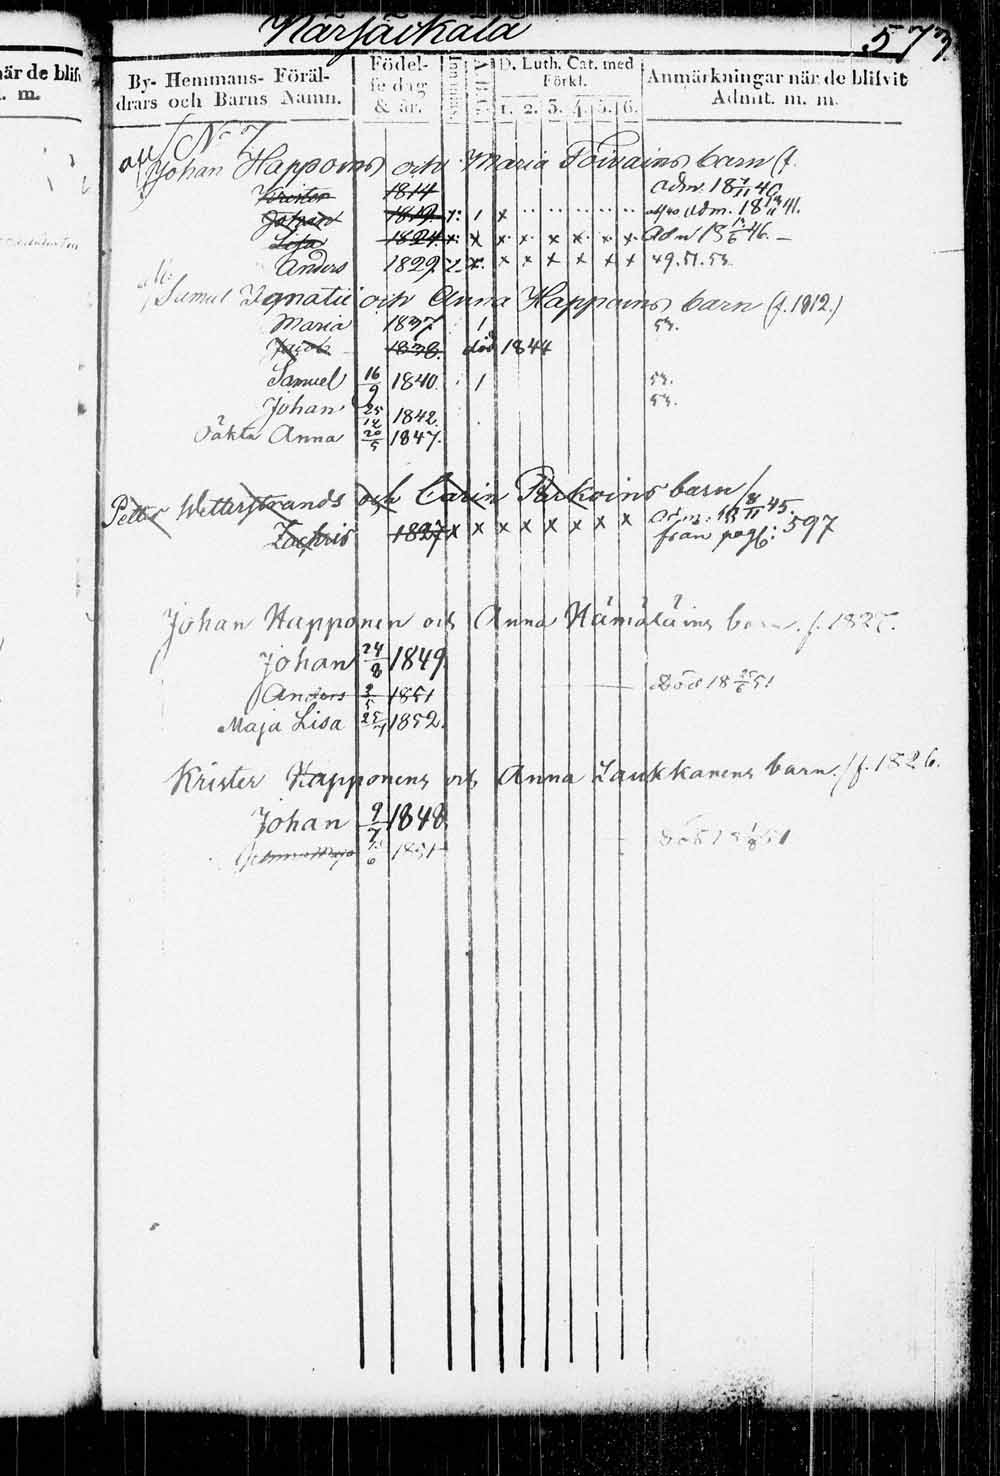 Närjäikälä 573.
när de blifvit
. m.
By- Hemmans- Föräl-
drars och Barns Namn.
Födel-
se dag
& år.
D. Luth. Cat. med
Förkl.
1. 2. 3. 4. 5. 6.
Anmärkningar när de blifvit
Admt. m. m.
No 7
Johan Happoins och Maria Toivains barn (f.
Krister 1814 adm. 18 40.
Johan 1819 1 x adm. 18 41.
Lisa 1824 x x x x x x x x Adm 18 46. —
Anders 1829 x x x x x x x 49. 51. 53.
Samuel Ignatii och Anna Happoins barn (f. 1812.)
Maria 1837 1 53.
Jacob 1838. död 1844
Samuel 16/9 1840. 1 53.
Johan 25/12 1842. 53.
oäkta Anna 20/5 1847.
Petter Wetterstrands och Carin Parkoins barn/
Zachris 1827 x x x x x x x x adm. 18 8/11 45.
från pag: 597
Johan Happonen och Anna Hämäläins barn. f. 1827.
Johan 24/8 1849
Anders 3/5 1851 Död 18 51
Maja Lisa 25/7 1852.
Krister Happonens och Anna Laukkanens barn. /f. 1826.
Johan 9/7 1848
Anna Maja 1851 Död 18 51